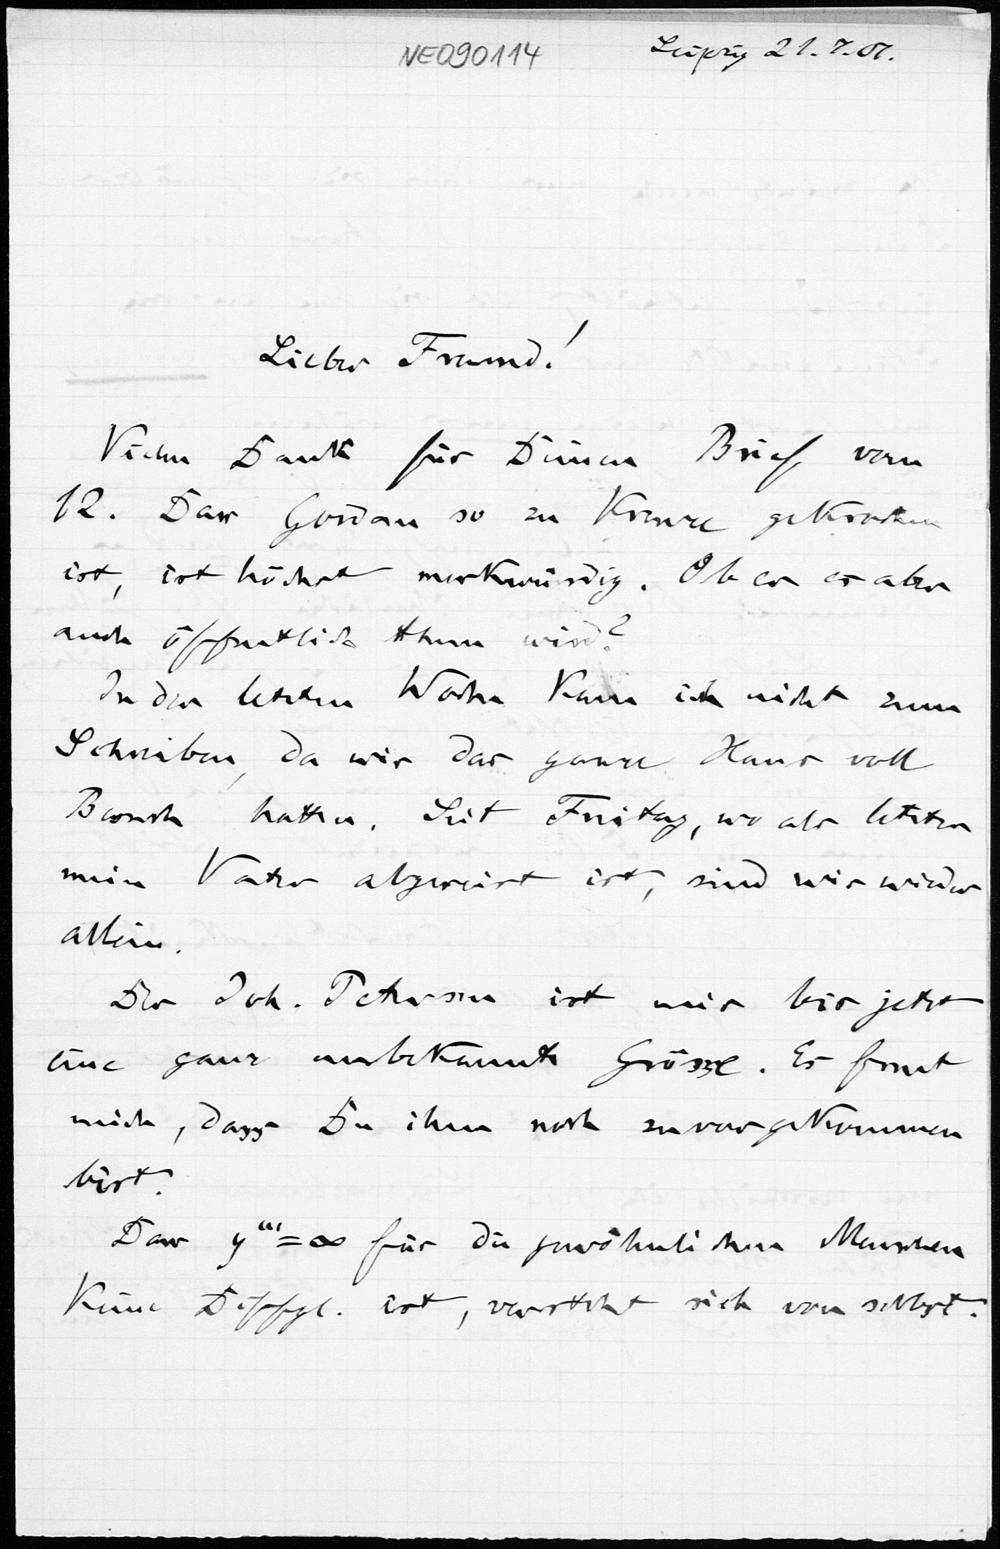 NE090114
Leipzig 21.7.01.
Lieber Freund!
Vielen Dank für Deinen Brief vom
12. Dass Gordan so zu Kreuze gekrochen
ist, ist höchst merkwürdig. Ob er es aber
auch öffentlich thun wird?
In der letzten Woche kam ich nicht zum
Schreiben, da wir das ganze Haus voll
Besuch hatten. Seit Freitag, wo als letzter
mein Vater abgereist ist, sind wir wieder
allein.
Der Joh. Petersen ist mir bis jetzt
eine ganz unbekannte Grösse. Es freut
mich, dass Du ihm noch zuvorgekommen
bist.
Dass y'''=∞ für die gewöhnlichen Menschen
keine Diffgl. ist, versteht sich von selbst.